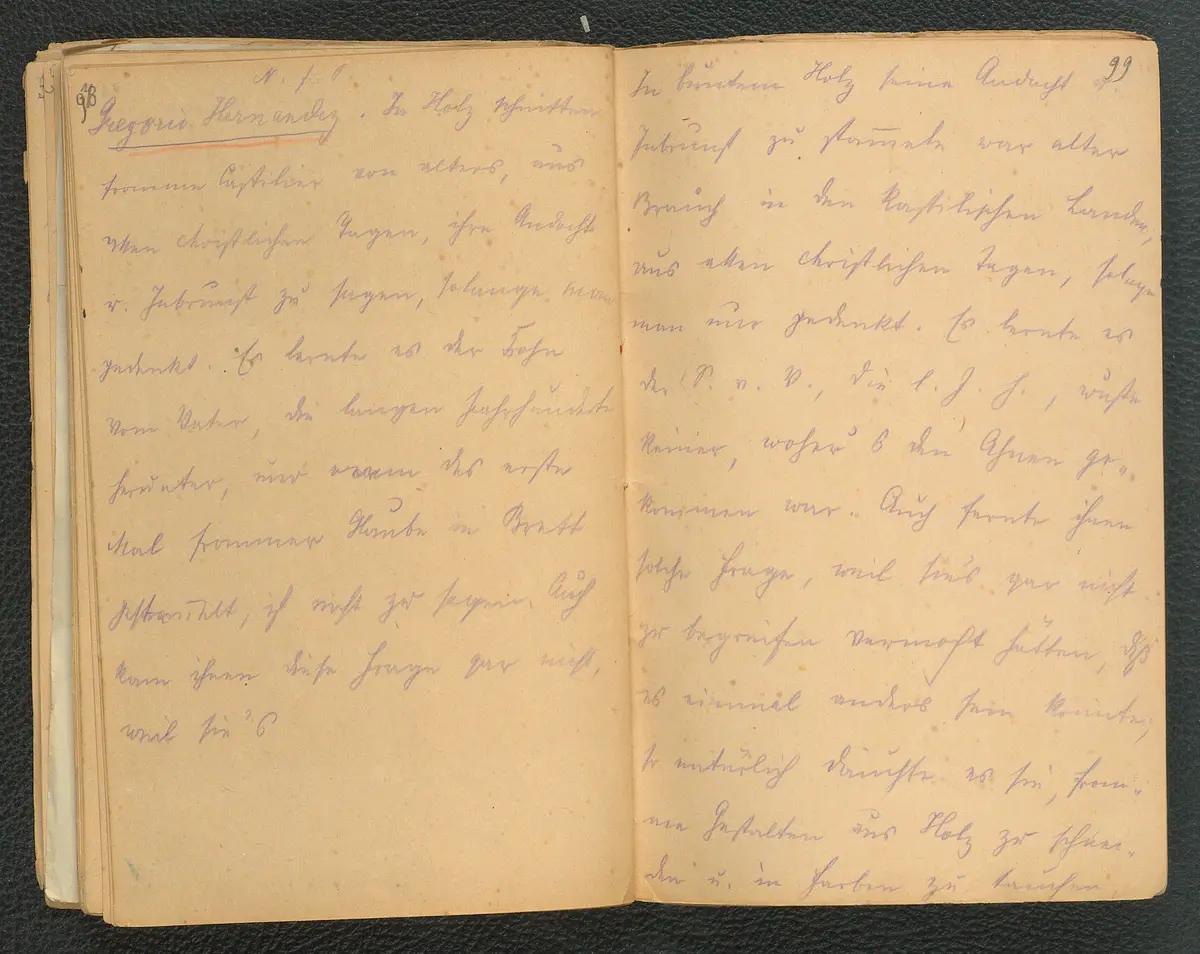 98
N. f. P.
Gregorio Hernandez. In Holz schnitten
fromme Castilier von alters, aus
alten christlichen Tagen, ihre Andacht
u. Inbrunst zu sagen, solange man
gedenkt. Es lernte es der Sohn
vom Vater, die langen Jahrhunderte
herunter, und wann das erste
Mal frommer Glaube in Brett
gestammelt, ist nicht zu sagen. Auch
kam ihnen diese Frage gar nicht,
weil sie's
99
In buntem Holz seine Andacht u.
Inbrunst zu stam̅eln war alter
Brauch in den kastilischen Landen,
aus alten christlichen Tagen, solange
man nur gedenkt. Es lernte es
der S. v. V., die l. J. h., wußte
keiner, woher's den Ahnen ge-
kommen war. Auch fernte ihnen
solche Frage, weil sie's gar nicht
zu begreifen vermocht hätten, daß
es einmal anders sein konnte;
so natürlich däuchte es sie, from-
me Gestalten aus Holz zu schnei-
den u. in Farben zu tauchen